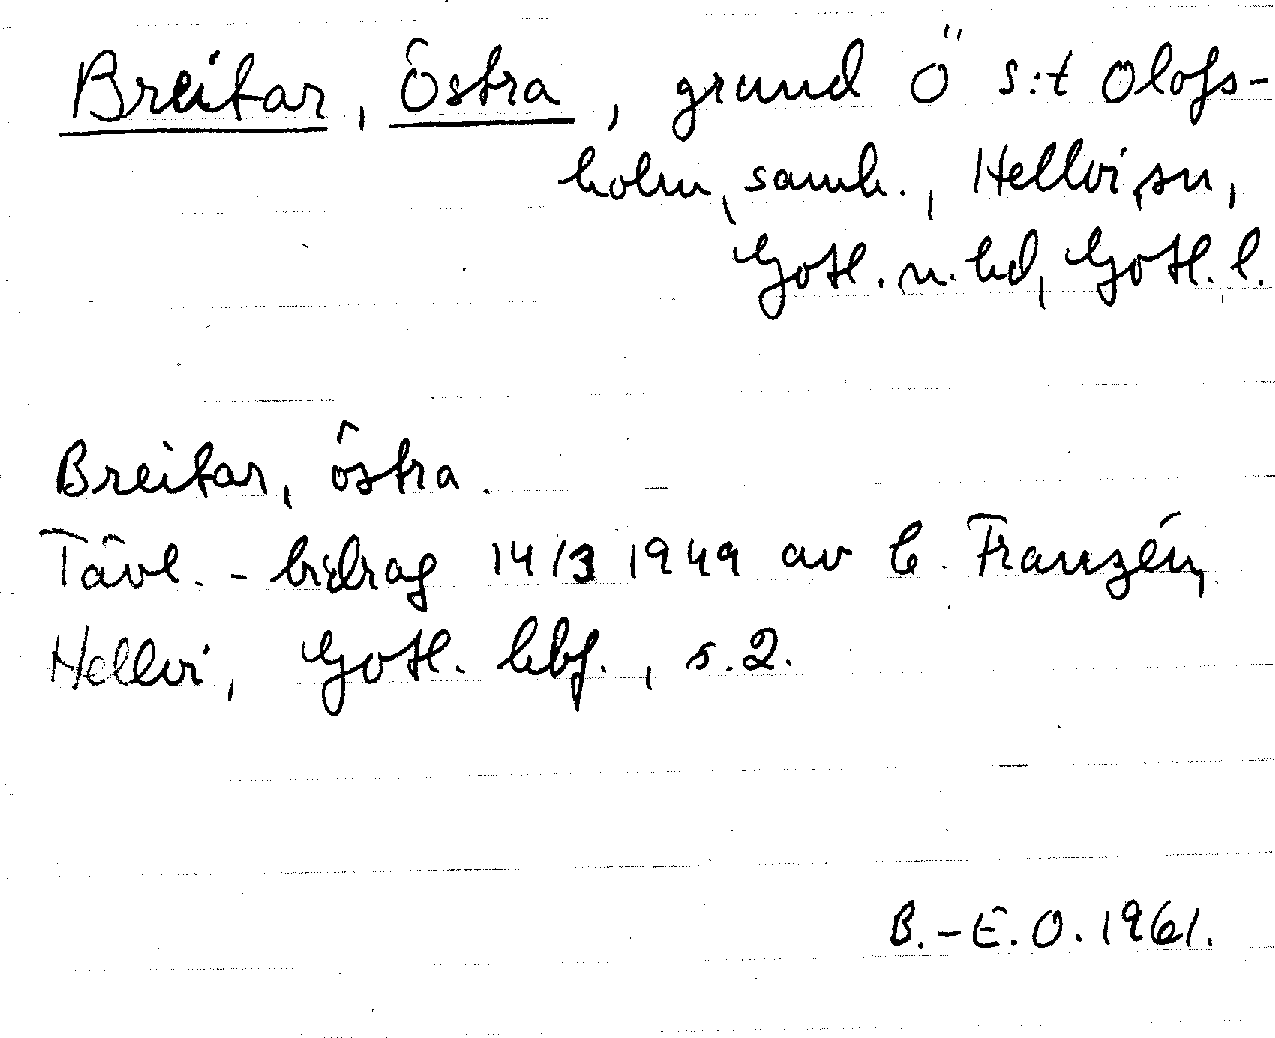 Breitar, Östra, grund Ö S:t Olofs-
holm, samh., Hellvi sn,
Gotl. n. hd, Gotl. l.
Breitar, östra.
Tävl.-bidrag 14/3 1949 av C. Franzén,
Hellvi, Gotl. hbf., s. 2.
B.-E.O. 1961.